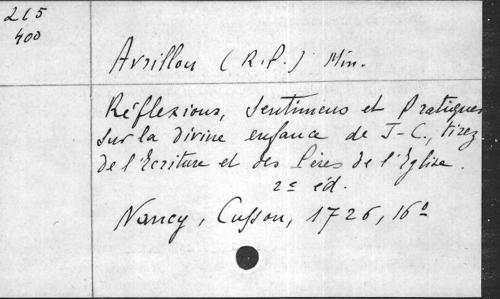 215
400
Avrillon (R.P.) Min.
Réflexions, Sentimens et Pratiques
sur la divine enfance de J-C., tirez
de l'Ecriture et des Pères de l'Eglise.
2e éd.
Nancy, Cusson, 1726, 16°